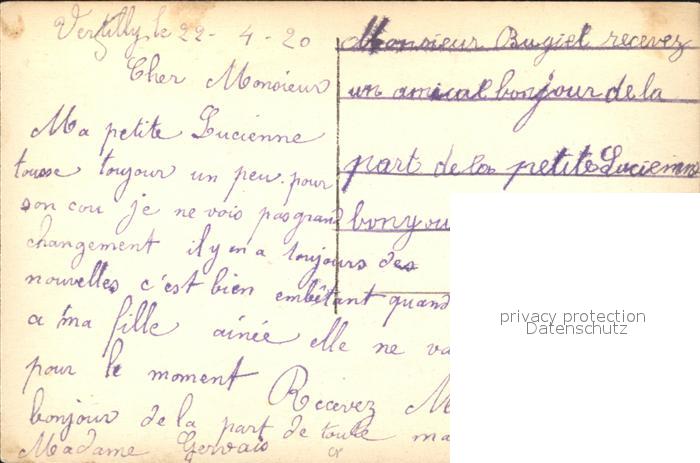 Verzilly le 22-4-20
Cher Monsieur
Ma petite Lucienne
tousse toujour un peu. pour
son cou je ne vois pas grand
changement il y en a toujours des
nouvelles c'est bien embêtant quand
a ma fille ainée elle ne va
pour le moment Recevez M
bonjour de la part de toute ma
Madame Gervais
Monsieur Bugiel recevez
un amical bonjour de la
part de la petite Lucienne
bonjou
privacy protection
Datenschutz